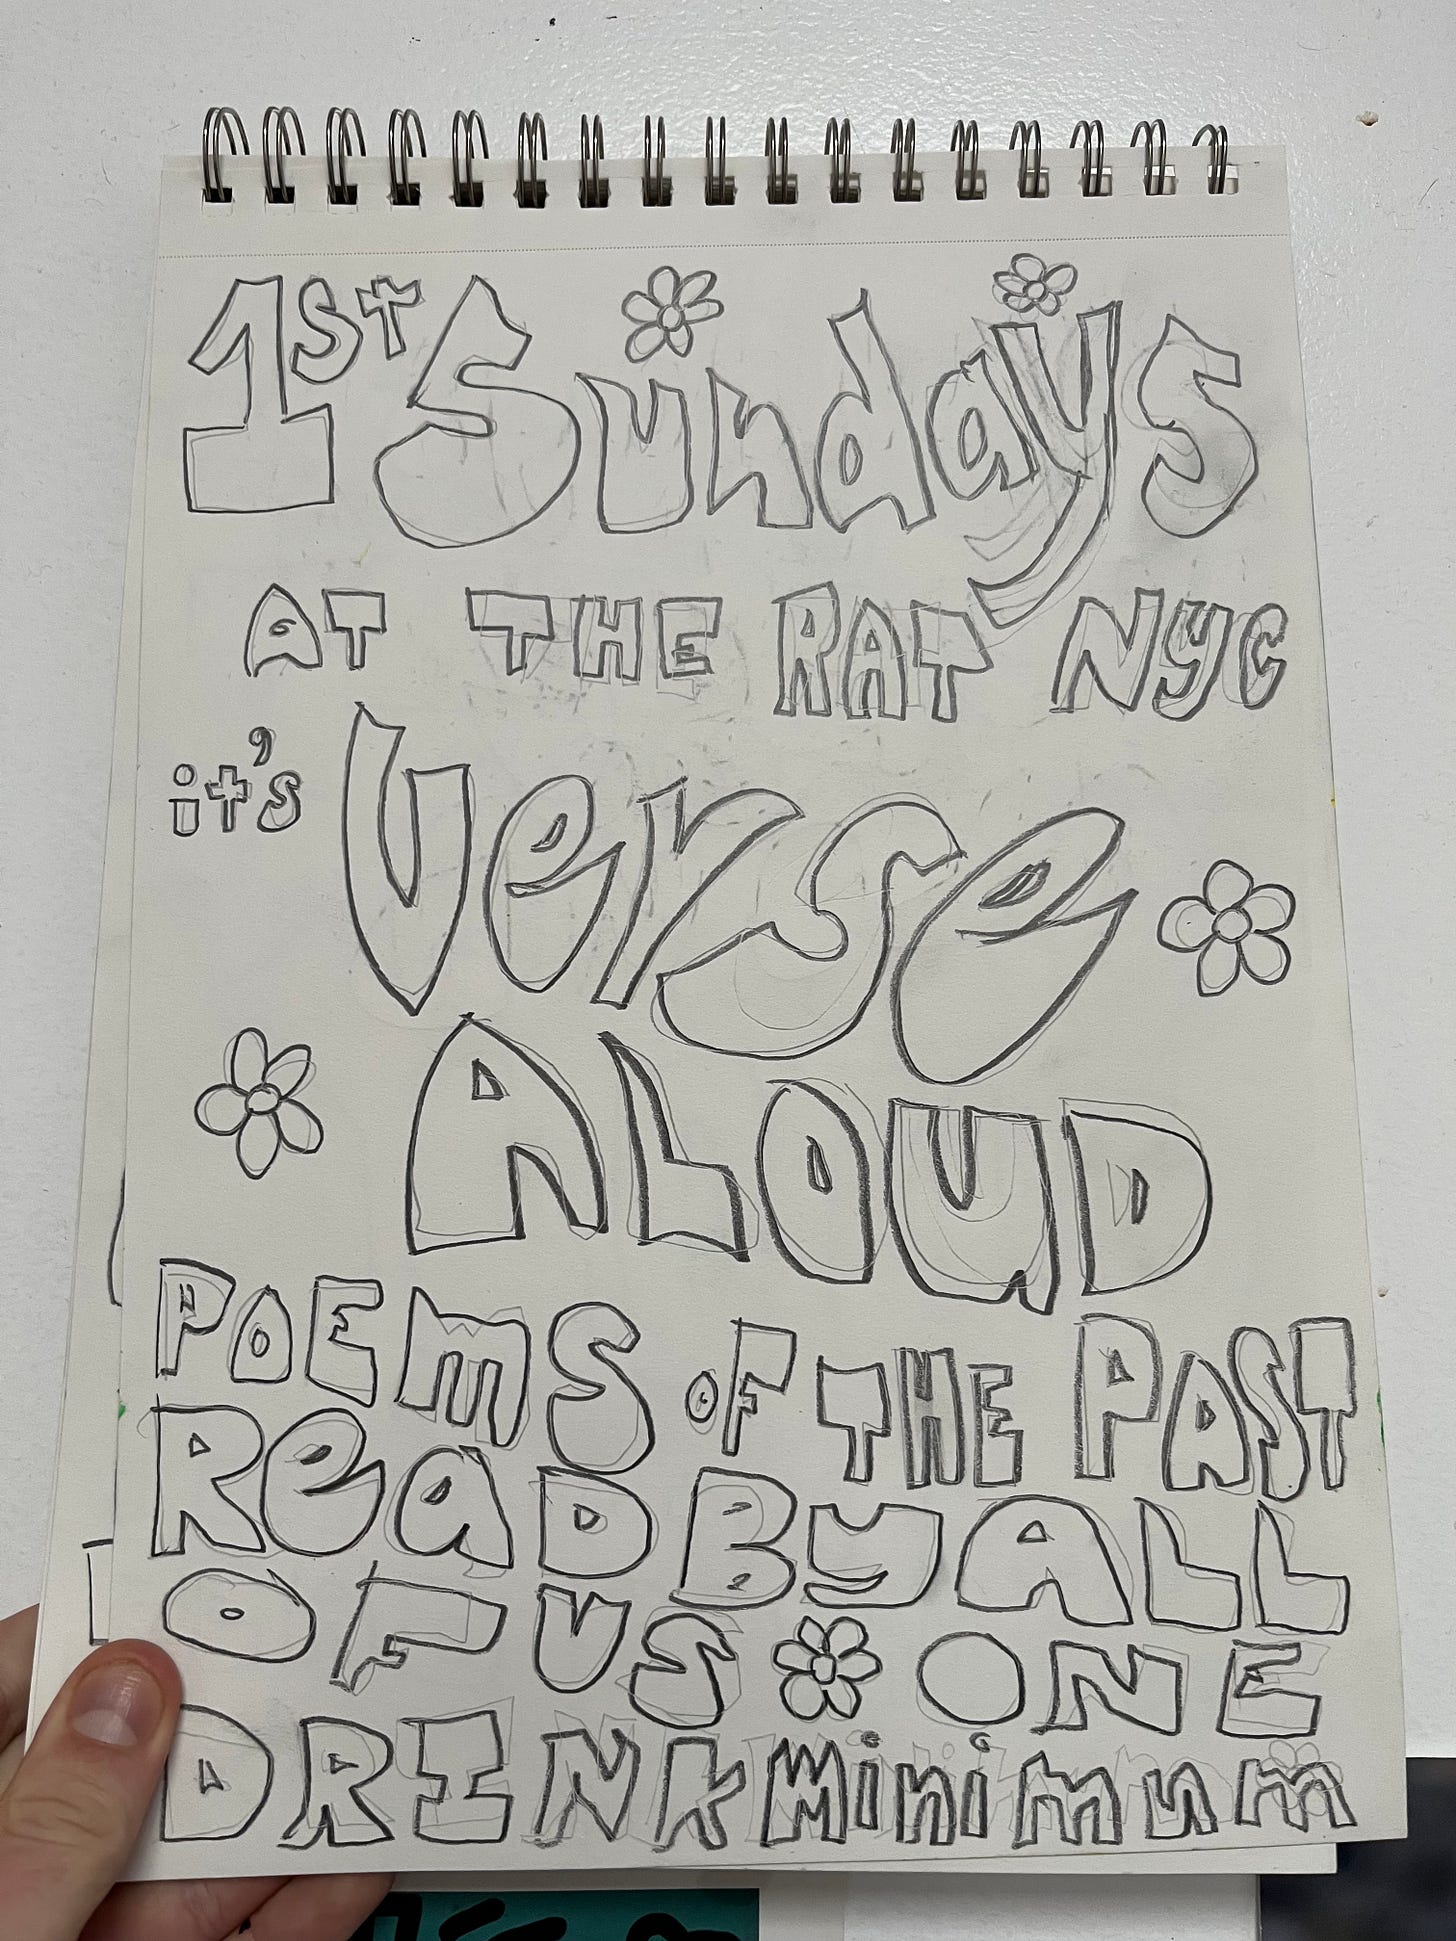 1st Sundays
AT THE RAT NYC
it's Verse
ALOUD
POEMS OF THE PAST
READ BY ALL
OF US ONE
DRINK Minimum